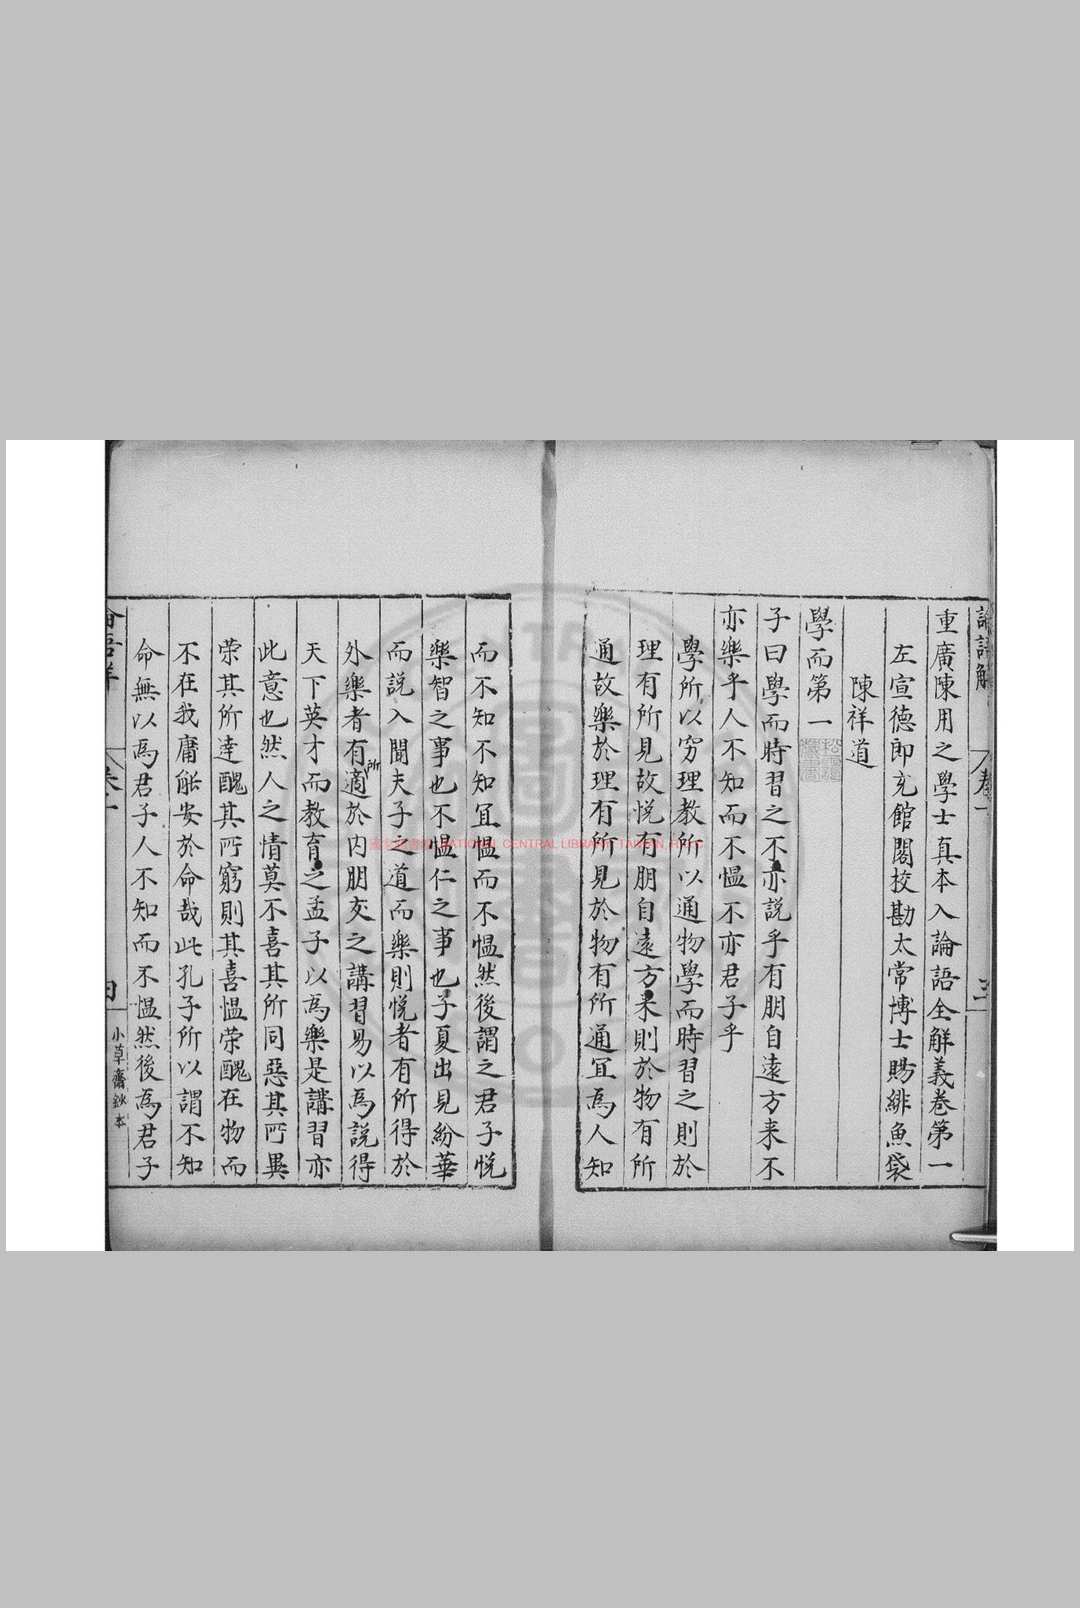 論語解 卷一 三
重廣陳用之學士真本入論語全解義卷第一
左宣德郎充館閣校勘太常博士賜緋魚袋
陳祥道
學而第一
子曰學而時習之不亦説乎有朋自遠方来不
亦樂乎人不知而不愠不亦君子乎
學所以穷理教所以通物學而時習之則於
理有所見故悦有朋自遠方来則於物有所
通故樂於理有所見於物有所通冝爲人知
而不知不知冝愠而不愠然後謂之君子悦
樂智之事也不愠仁之事也子夏出見紛華
而説入聞夫子之道而樂則悦者有所得於
外樂者有所適於内朋友之講習易以爲説得
天下英才而教育之孟子以爲樂是講習亦
此意也然人之情莫不喜其所同惡其所異
荣其所達醜其所窮則其喜愠荣醜在物而
不在我庸能安於命哉此孔子所以謂不知
命無以爲君子人不知而不愠然後爲君子
卷一 四
小草齋鈔本
NATIONAL CENTRAL LIBRARY, TAIWAN, R.O.C.